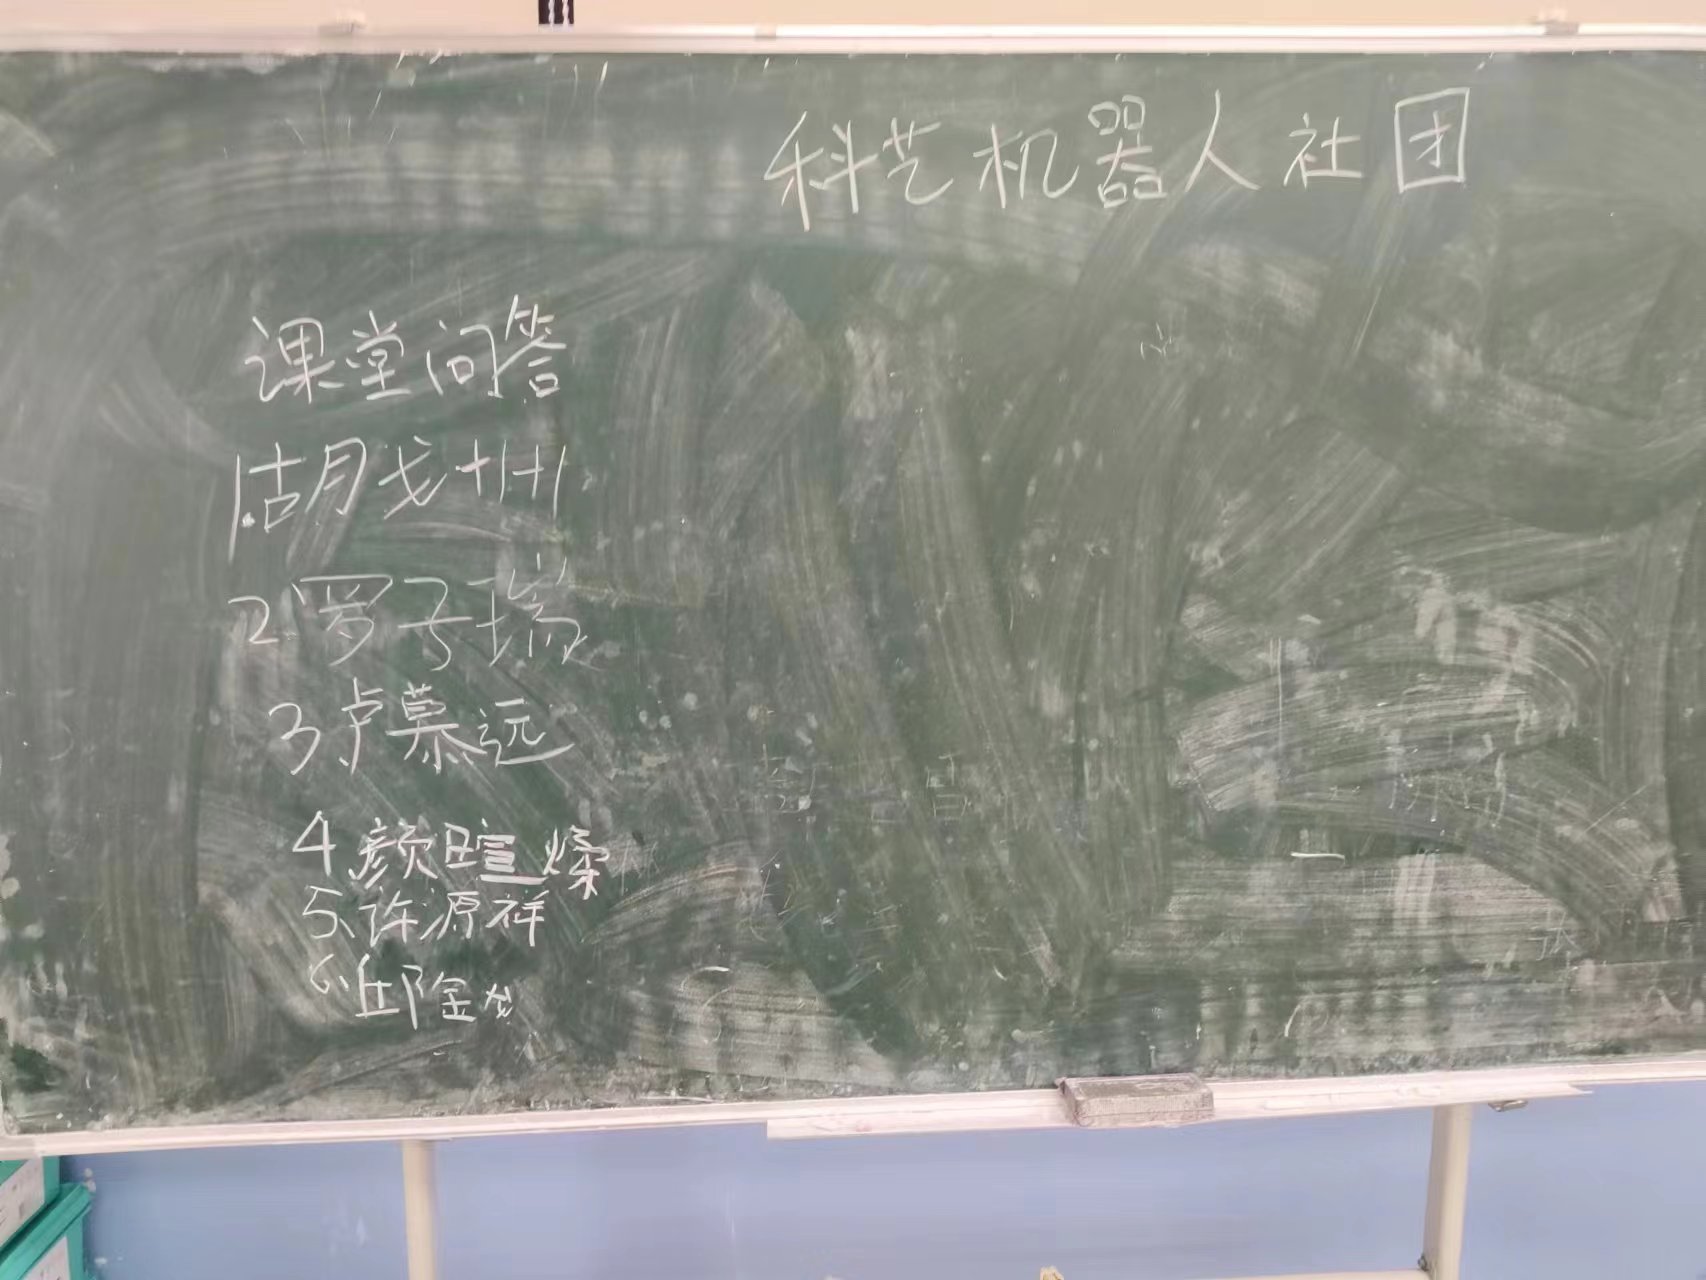 科艺机器人社团
课堂问答
1.胡戈州
2.罗子瑞
3卢慕远
4.颜瑄燦
5、许源祥
6.邱隆龙